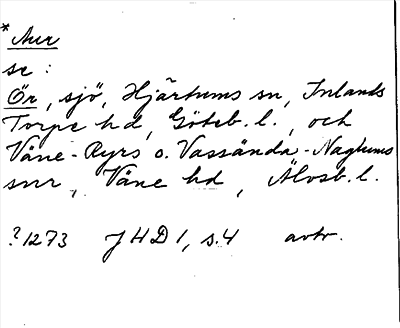 *Aur
se:
Ör, sjö, Hjärtums sn, Inlands
Torpe hd, Göteb. l., och
Väne-Ryrs o. Vassända-Naglums
snr, Väne hd, Älvsb. l.
?1273 JHD 1, s. 4 avtr.